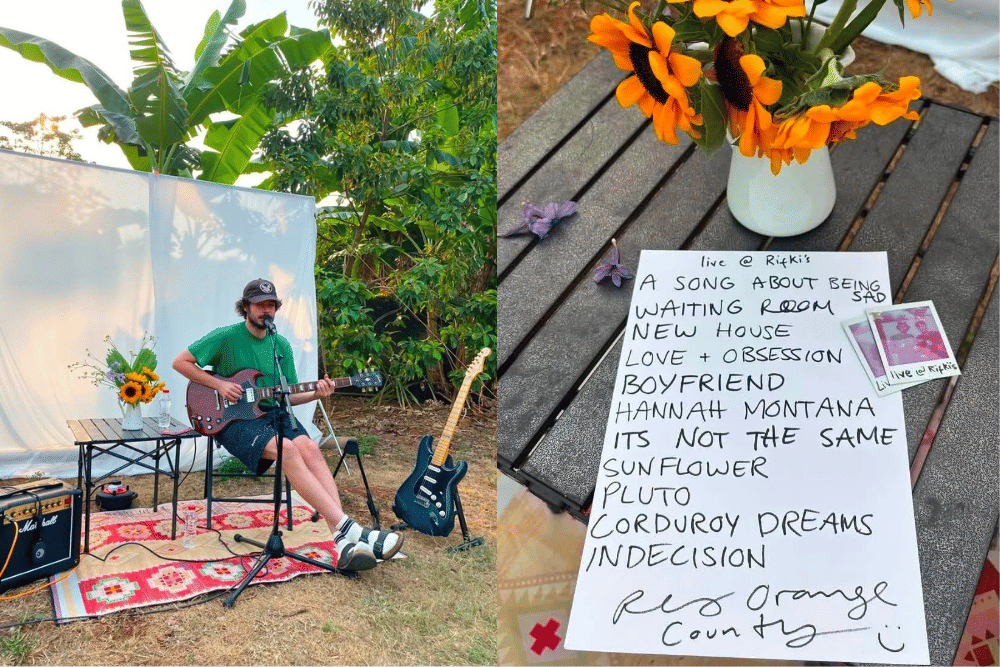 Marshall
live @ Rifki's
A SONG ABOUT BEING SAD
WAITING ROOM
NEW HOUSE
LOVE + OBSESSION
BOYFRIEND
HANNAH MONTANA
ITS NOT THE SAME
SUNFLOWER
PLUTO
CORDUROY DREAMS
INDECISION
Rex Orange
County
live @ Rifkis
Liv